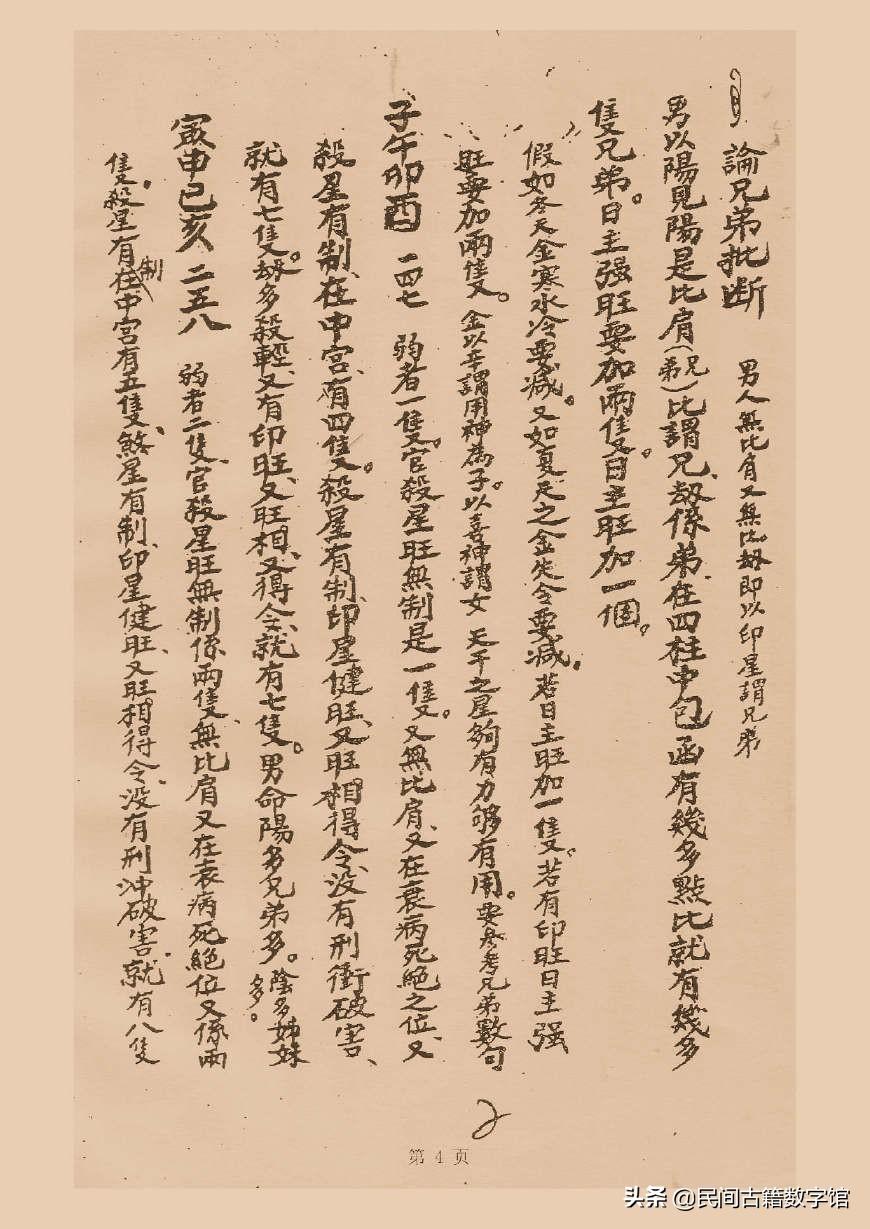 論兄弟批断 男人無比肩又無比劫即以印星謂兄弟
男以陽見陽是比肩(兄弟)比謂兄、劫係弟、在四柱中包函有幾多點比就有幾多
隻兄弟。日主强旺要加兩隻。日主旺加一個。
假如冬天金寒水冷要减。又如夏天之金失令要减。若日主旺加一隻。若有印旺日主强
旺要加兩隻。金以辛謂用神為子。以喜神謂女 天干之星夠有力够有用。要参考兄弟數句
子午卯酉 一四七 弱者一隻。官殺星旺無制是一隻。又無比肩、又在衰病死絕之位、又
殺星有制、在中宮、有四隻。殺星有制、印星健旺、又旺相得令、没有刑衝破害、
就有七隻。劫多殺輕、又有印旺、又旺相、又得令、就有七隻。男命陽多兄弟多。陰多姊妹多。
寅申巳亥 二五八 弱者二隻、官殺星旺無制係兩隻、無比肩又在衰病死絕位又係兩
隻、殺星有制在中宮有五隻、煞星有制、印星健旺、又旺相得令、没有刑冲破害、就有八隻
2
第 4 页
头条 @民间古籍数字馆